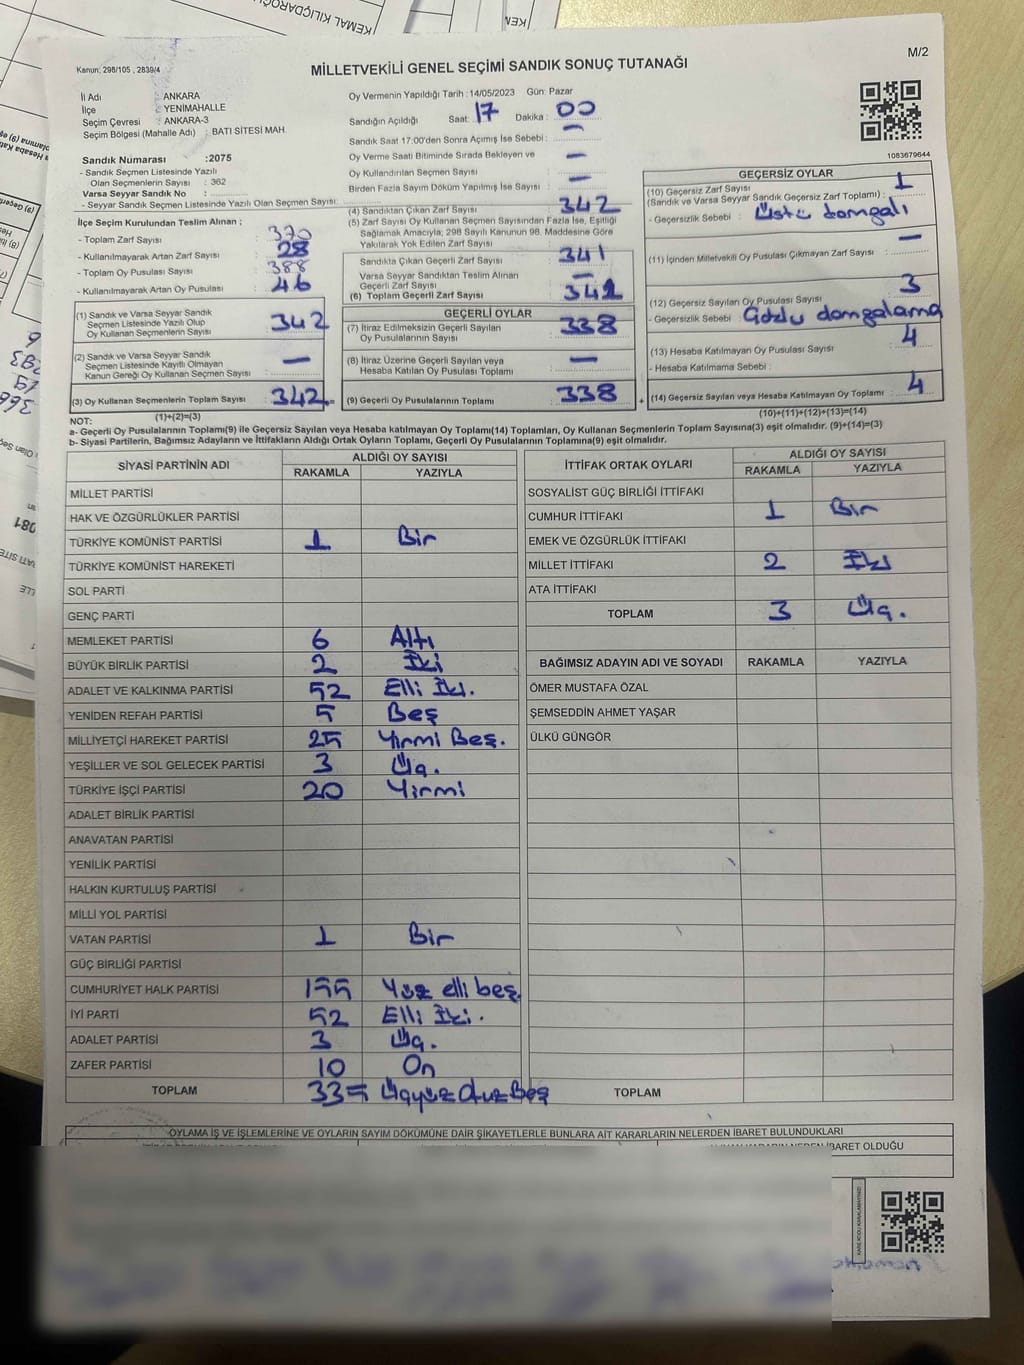 KEMAL KILIÇDAROĞLU
KEM
M/2
Kanun, 298/105 , 2839/4
MİLLETVEKİLİ GENEL SEÇİMİ SANDIK SONUÇ TUTANAĞI
İl Adı : ANKARA
İlçe : YENİMAHALLE
Seçim Çevresi : ANKARA-3
Seçim Bölgesi (Mahalle Adı) : BATI SİTESİ MAH.
Sandık Numarası :2075
- Sandık Seçmen Listesinde Yazılı
Olan Seçmenlerin Sayısı : 362
Varsa Seyyar Sandık No :
- Seyyar Sandık Seçmen Listesinde Yazılı Olan Seçmen Sayısı:
Oy Vermenin Yapıldığı Tarih :14/05/2023 Gün: Pazar
Sandığın Açıldığı Saat: 17 Dakika : 00
Sandık Saat 17:00'den Sonra Açımış İse Sebebi : —
Oy Verme Saati Bitiminde Sırada Bekleyen ve
Oy Kullandırılan Seçmen Sayısı : —
Birden Fazla Sayım Döküm Yapılmış İse Sayısı : —
1083679644
İlçe Seçim Kurulundan Teslim Alınan ;
- Toplam Zarf Sayısı : 370
- Kullanılmayarak Artan Zarf Sayısı : 28
- Toplam Oy Pusulası Sayısı : 388
- Kullanılmayarak Artan Oy Pusulası : 46
(1) Sandık ve Varsa Seyyar Sandık
Seçmen Listesinde Yazılı Olup
Oy Kullanan Seçmenlerin Sayısı : 342
(2) Sandık ve Varsa Seyyar Sandık
Seçmen Listesinde Kayıtlı Olmayan
Kanun Gereği Oy Kullanan Seçmen Sayısı : —
(3) Oy Kullanan Seçmenlerin Toplam Sayısı : 342
(1)+(2)=(3)
(4) Sandıktan Çıkan Zarf Sayısı : 342
(5) Zarf Sayısı Oy Kullanan Seçmen Sayısından Fazla İse, Eşitliği
Sağlamak Amacıyla; 298 Sayılı Kanunun 98. Maddesine Göre
Yakılarak Yok Edilen Zarf Sayısı :
Sandıkta Çıkan Geçerli Zarf Sayısı : 341
Varsa Seyyar Sandıktan Teslim Alınan
Geçerli Zarf Sayısı : —
(6) Toplam Geçerli Zarf Sayısı : 341
GEÇERLİ OYLAR
(7) İtiraz Edilmeksizin Geçerli Sayılan
Oy Pusulasının Sayısı : 338
(8) İtiraz Üzerine Geçerli Sayılan veya
Hesaba Katılan Oy Pusulası Toplamı : —
(9) Geçerli Oy Pusulalarının Toplamı : 338
GEÇERSİZ OYLAR
(10) Geçersiz Zarf Sayısı
(Sandık ve Varsa Seyyar Sandık Geçersiz Zarf Toplamı) : 1
- Geçersizlik Sebebi : Üstü damgalı
(11) İçinden Milletvekili Oy Pusulası Çıkmayan Zarf Sayısı : —
(12) Geçersiz Sayılan Oy Pusulası Sayısı : 3
- Geçersizlik Sebebi :
(13) Hesaba Katılmayan Oy Pusulası Sayısı : 4
- Hesaba Katmama Sebebi :
(14) Geçersiz Sayılan veya Hesaba Katılmayan Oy Toplamı : 4
(10)+(11)+(12)+(13)=(14)
NOT:
a- Geçerli Oy Pusulalarının Toplamı(9) ile Geçersiz Sayılan veya Hesaba katılmayan Oy Toplamı(14) Toplamları, Oy Kullanan Seçmenlerin Toplam Sayısına(3) eşit olmalıdır. (9)+(14)=(3)
b- Siyasi Partilerin, Bağımsız Adayların ve İttifakların Aldığı Ortak Oyların Toplamı, Geçerli Oy Pusulalarının Toplamına(9) eşit olmalıdır.
SİYASİ PARTİNİN ADI ALDIĞI OY SAYISI
RAKAMLA YAZIYLA
MİLLET PARTİSİ
HAK VE ÖZGÜRLÜKLER PARTİSİ
TÜRKİYE KOMÜNİST PARTİSİ 1 Bir
TÜRKİYE KOMÜNİST HAREKETİ
SOL PARTİ
GENÇ PARTİ
MEMLEKET PARTİSİ 6 Altı
BÜYÜK BİRLİK PARTİSİ 2 İki
ADALET VE KALKINMA PARTİSİ 52 Elli İki.
YENİDEN REFAH PARTİSİ 5 Beş
MİLLİYETÇİ HAREKET PARTİSİ 25 Yirmi Beş.
YEŞİLLER VE SOL GELECEK PARTİSİ 3 Üç.
TÜRKİYE İŞÇİ PARTİSİ 20 Yirmi
ADALET BİRLİK PARTİSİ
ANAVATAN PARTİSİ
YENİLİK PARTİSİ
HALKIN KURTULUŞ PARTİSİ
MİLLİ YOL PARTİSİ
VATAN PARTİSİ 1 Bir
GÜÇ BİRLİĞİ PARTİSİ
CUMHURİYET HALK PARTİSİ 155 Yüz elli beş
İYİ PARTİ 52 Elli İki.
ADALET PARTİSİ 3 Üç.
ZAFER PARTİSİ 10 On
TOPLAM 335 Üçyüz Otuz Beş
İTTİFAK ORTAK OYLARI ALDIĞI OY SAYISI
RAKAMLA YAZIYLA
SOSYALİST GÜÇ BİRLİĞİ İTTİFAKI
CUMHUR İTTİFAKI 1 Bir
EMEK VE ÖZGÜRLÜK İTTİFAKI
MİLLET İTTİFAKI 2 İki
ATA İTTİFAKI
TOPLAM 3 Üç.
BAĞIMSIZ ADAYIN ADI VE SOYADI RAKAMLA YAZIYLA
ÖMER MUSTAFA ÖZAL
ŞEMSEDDİN AHMET YAŞAR
ÜLKÜ GÜNGÖR
TOPLAM
OYLAMA İŞ VE İŞLEMLERİNE VE OYLARIN SAYIM DÖKÜMÜNE DAİR ŞİKAYETLERLE BUNLARA AİT KARARLARIN NELERDEN İBARET BULUNDUKLARI
İBARET OLDUĞU